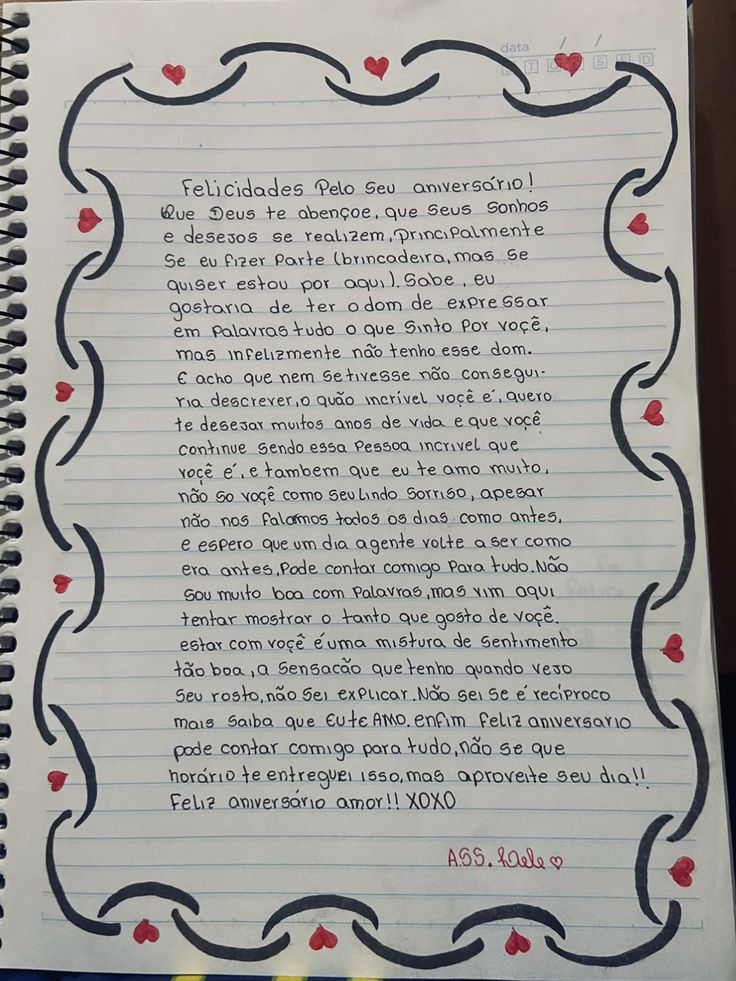 data / /
Felicidades Pelo Seu aniversário!
Que Deus te abençoe, que seus sonhos
e desejos se realizem, principalmente
se eu fizer Parte (brincadeira, mas se
quiser estou por aqui). Sabe, eu
gostaria de ter o dom de expressar
em Palavras tudo o que sinto Por voçê,
mas infelizmente não tenho esse dom.
E acho que nem se tivesse não consegui-
ria descrever, o quão incrível voçê é, quero
te desejar muitos anos de vida e que voçê
continue sendo essa Pessoa incrivel que
voçê é, e tambem que eu te amo muito,
não so voçê como seu lindo sorriso, apesar
não nos falamos todos os dias como antes,
e espero que um dia agente volte a ser como
era antes, Pode contar comigo Para tudo. Não
sou muito boa com Palavras, mas vim aqui
tentar mostrar o tanto que gosto de voçê.
estar com voçê é uma mistura de sentimento
tão boa, a sensacão que tenho quando vejo
seu rosto, não sei explicar. Não sei se é recíproco
mais saiba que EU te AMO. enfim feliz aniversario
pode contar comigo para tudo, não se que
horário te entreguei isso, mas aproveite seu dia!!
Feliz aniversário amor!! XOXO
ASS.